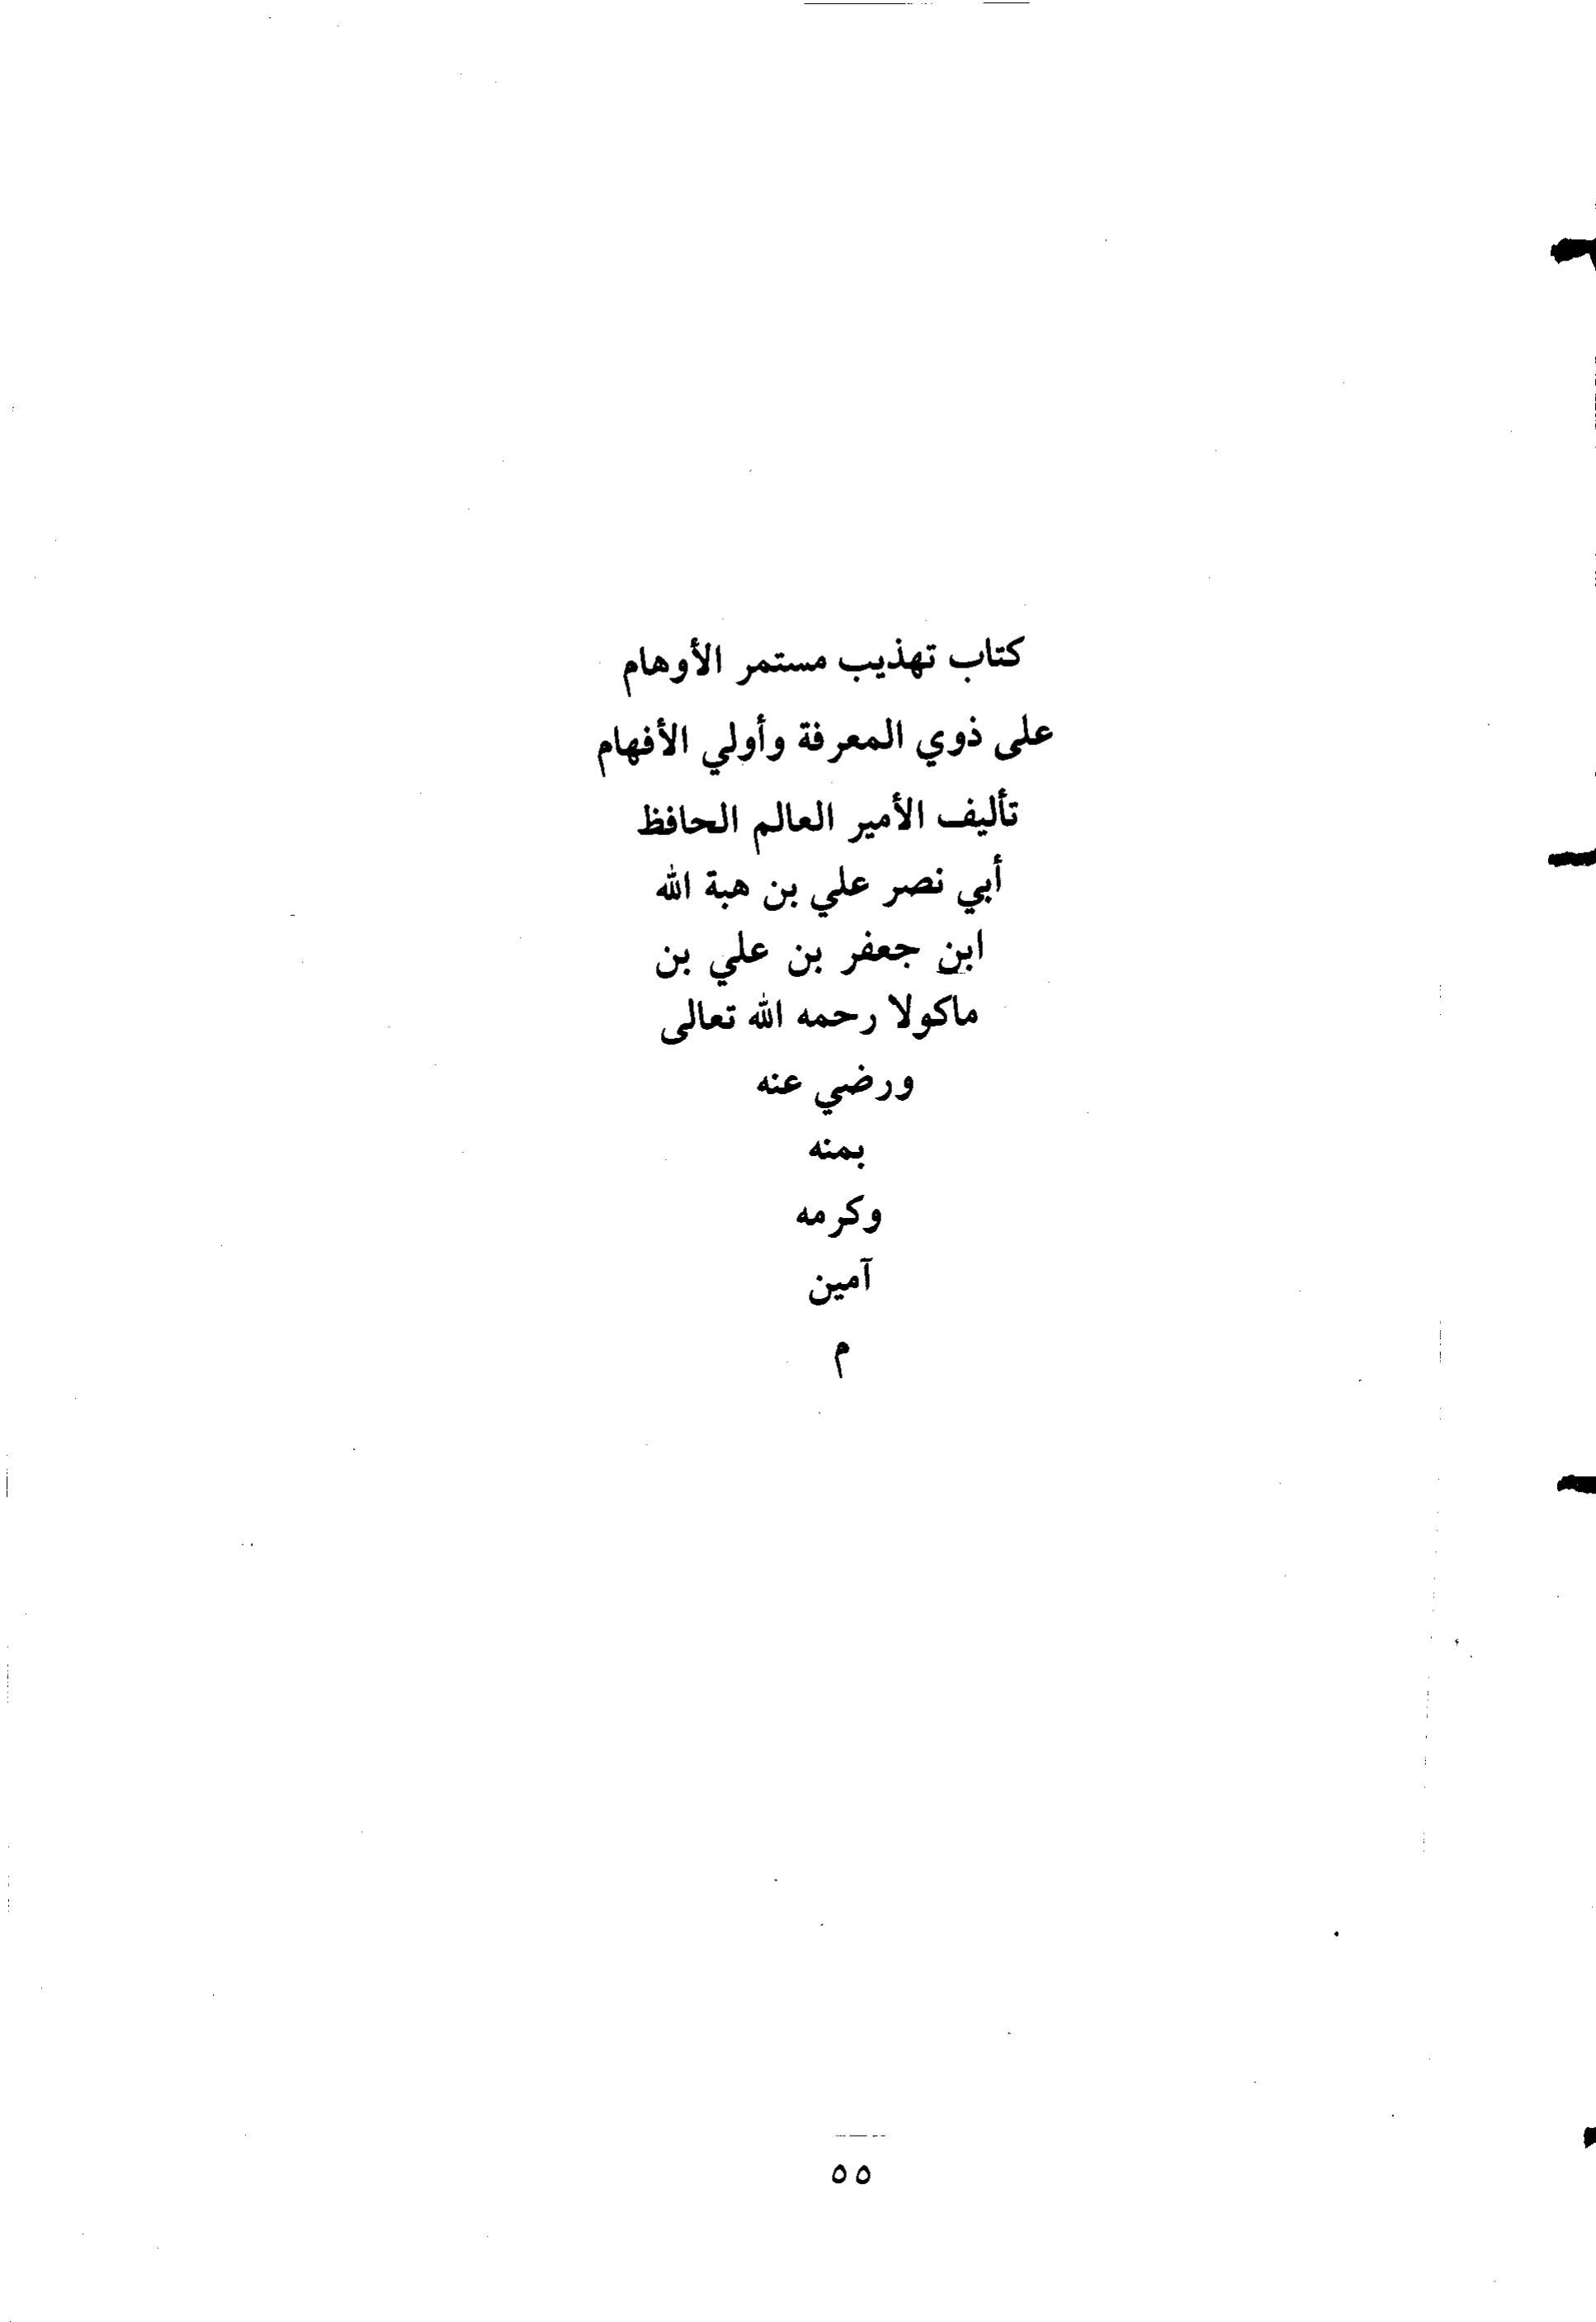 كتاب تهذيب مستمر الأوهام
على ذوي المعرفة وأولي الأفهام
تأليف الأمير العالم الحافظ
أبي نصر علي بن هبة الله
ابن جعفر بن علي بن
ماكولا رحمه الله تعالى
ورضي عنه
بمنه
وكرمه
آمين
م
٥٥